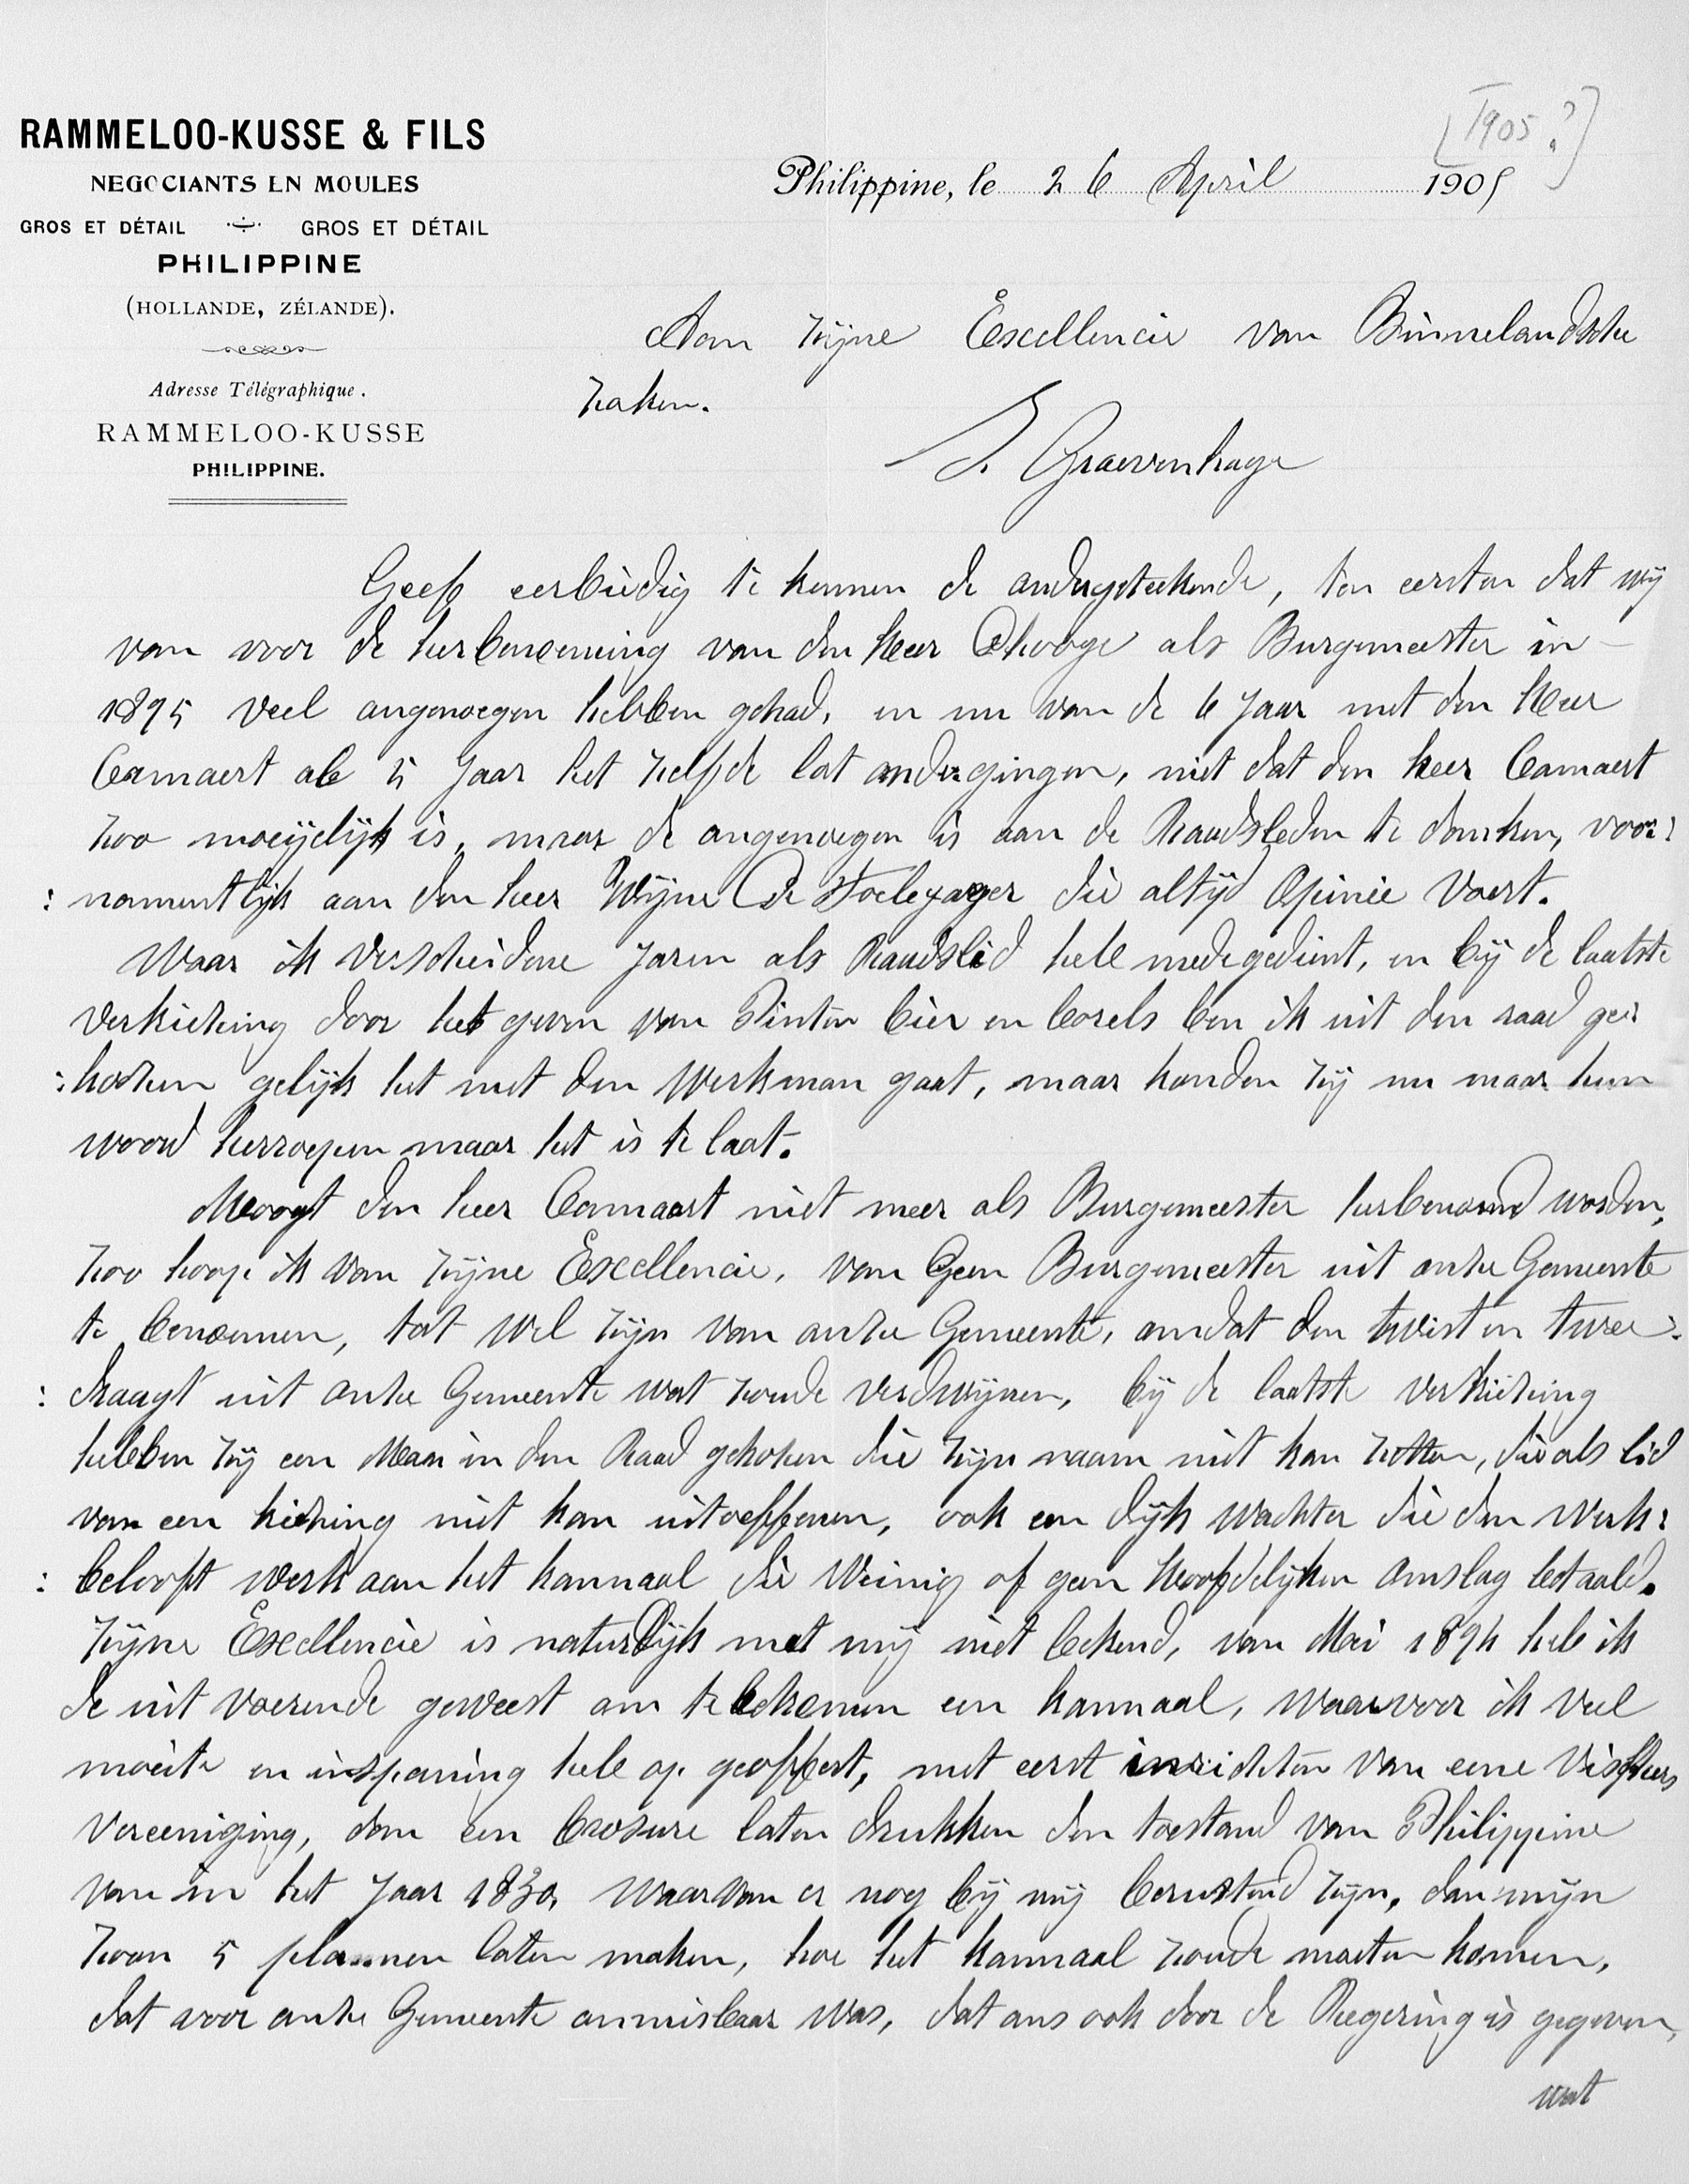 [1905?]
RAMMELOO-KUSSE & FILS
NEGOCIANTS EN MOULES
GROS ET DÉTAIL GROS ET DÉTAIL
PHILIPPINE
(HOLLANDE, ZÉLANDE).
Adresse Télégraphique.
RAMMELOO-KUSSE
PHILIPPINE.
Philippine, le 26 April 1905
Aan Zijne Excellencie van Binnelandsche
Zaken.
S. Graevenhage
Geeft eerbiedig te kennen de ondergeteekende, ten eersten dat wij
van voor de herbenoeming van den Heer Dhooge als Burgemeester in
1895 veel ongenoegen hebben gehad, en nu van de 6 Jaar met den Heer
Camaert al 5 Jaar het zelfde lot ondergingen, niet dat den heer Camaert
zoo moeijelijk is, maar de ongenoegen is aan de Raadsleden te danken, voor:
: namentlijk aan den heer Wijne De Stoelejager die altijd Opinie Voert.
Waar ik verscheidene Jaren als Raadslid hebb medegedient, en bij de laatste
verkiezing door het geven van Pinten bier en borels ben ik uit den raad ge:
: kozen gelijk het met den Werksman gaat, maar konden zij nu maar hun
woord herroepen maar het is te laat.
Moogt den heer Camaert niet meer als Burgemeester herbenoemd worden,
zoo hoop ik van Zijne Excellencie, van geen Burgemeester uit onze Gemeente
te benoemen, tot wel zijn van onze Gemeente, omdat den twist en twee:
: draagt uit onze Gemeente wat zoude verdwijnen, bij de laatste verkiezing
hebben zij een Man in den Raad gekozen die zijn naam niet kan zetten, die als lid
van een kiezing niet kan uitoeffenen, ook een dijk wachter die den Werk:
: belooft werk aan het kannaal die Weinig of geen Hoofdelijken omslag betaald.
Zijne Excellencie is natuurlijk met mij niet bekend, van Mei 1894 heb ik
de uit voerende geweest om te bekomen een kannaal, waarvoor ik veel
moeite en inspanning hebb op geoffert, met eerst inrichten van eene Visschers
Vereeniging, dan een brosure laten drukken den toestand van Philippine
van in het Jaar 1830, waarvan er nog bij mij berustend zijn, dan mijn
zoon 5 plannen laten maken, hoe het kannaal zoude moeten komen,
dat voor onze Gemeente onmisbaar was, dat ons ook door de Regering is gegeven,
wat